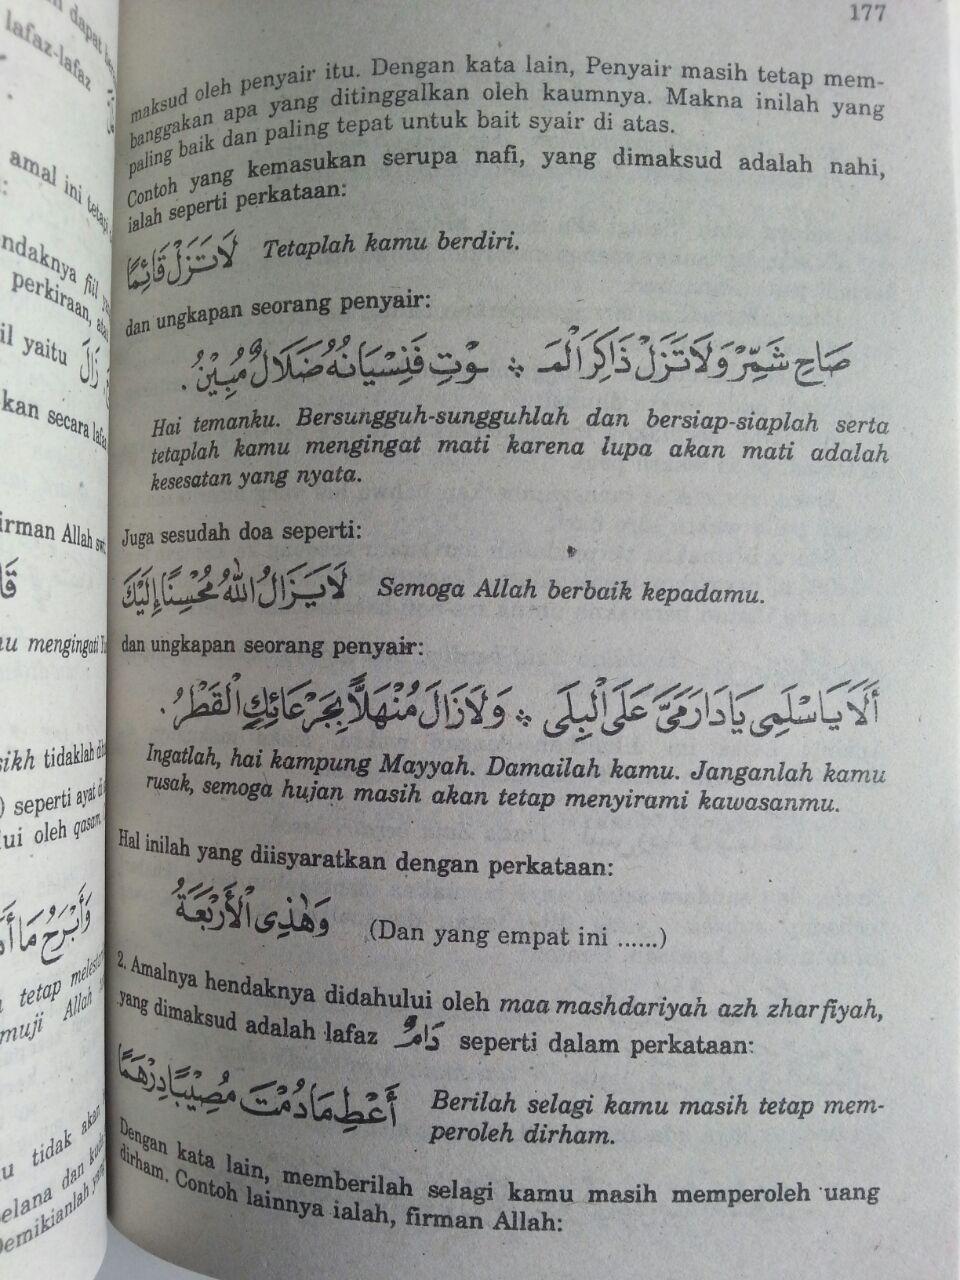 177
maksud oleh penyair itu. Dengan kata lain, Penyair masih tetap mem-
banggakan apa yang ditinggalkan oleh kaumnya. Makna inilah yang
paling baik dan paling tepat untuk bait syair di atas.
Contoh yang kemasukan serupa nafi, yang dimaksud adalah nahi,
ialah seperti perkataan:
لَا تَزَلْ قَائِمًا Tetaplah kamu berdiri.
dan ungkapan seorang penyair:
صَاحِ شَمِّرْ وَلَا تَزَلْ ذَاكِرَ الْمَـ ـوْتِ فَنِسْيَانُهُ ضَلَالٌ مُبِيْنُ.
Hai temanku. Bersungguh-sungguhlah dan bersiap-siaplah serta
tetaplah kamu mengingat mati karena lupa akan mati adalah
kesesatan yang nyata.
Juga sesudah doa seperti:
لَا يَزَالُ اللهُ مُحْسِنًا إِلَيْكَ Semoga Allah berbaik kepadamu.
dan ungkapan seorang penyair:
أَلَا يَا سْلَمِى يَا دَارَ مَىَّ عَلَى الْبِلَى وَلَا زَالَ مُنْهَلًّا بِجَرْعَائِكِ الْقَطْرُ.
Ingatlah, hai kampung Mayyah. Damailah kamu. Janganlah kamu
rusak, semoga hujan masih akan tetap menyirami kawasanmu.
Hal inilah yang diisyaratkan dengan perkataan:
وَهٰذِى الْأَرْبَعَةُ (Dan yang empat ini ......)
2. Amalnya hendaknya didahului oleh maa mashdariyah azh zharfiyah,
yang dimaksud adalah lafaz دَامَ seperti dalam perkataan:
أَعْطِ مَا دُمْتَ مُصِيْبًا دِرْهَمًا Berilah selagi kamu masih tetap mem-
peroleh dirham.
Dengan kata lain, memberilah selagi kamu masih memperoleh uang
dirham. Contoh lainnya ialah, firman Allah: